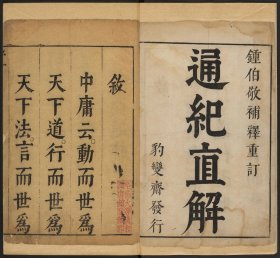 鍾伯敬補釋重訂
通紀直解
豹變齋發行
敘
中庸云動而世爲
天下道行而世爲
天下法言而世爲